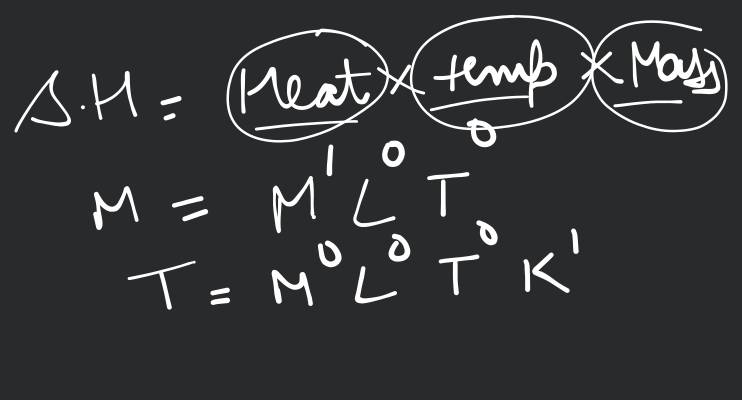 S.H = Heat × temp × Mass
M = M¹ L⁰ T⁰
T = M⁰ L⁰ T⁰ K¹